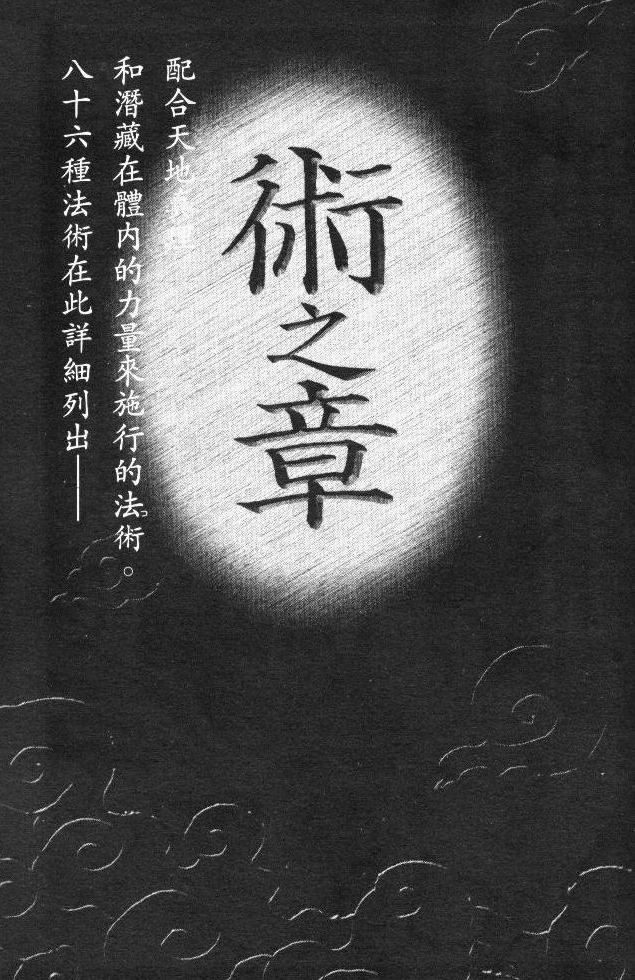 術之章
配合天地真理
和潛藏在體內的力量來施行的法術。
八十六種法術在此詳細列出——